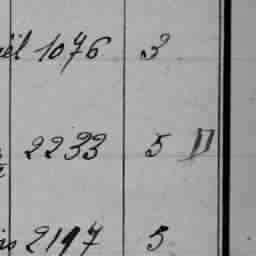 ël 1076 3
2233 5 D
is 2197 5